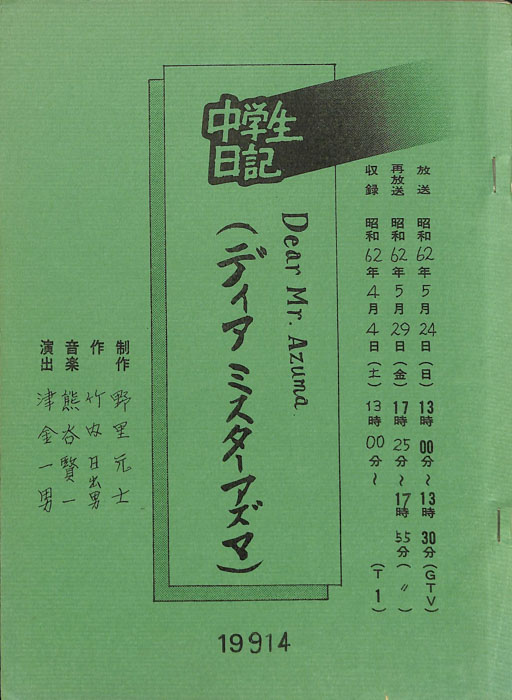 中学生
日記
放送 昭和62年5月24日(日)13時00分～13時30分(GTV)
再放送 昭和62年5月29日(金)17時25分～17時55分(〃)
収録 昭和62年4月4日(土)13時00分～(T1)
Dear Mr. Azuma
(ディア ミスターアズマ)
制作 野里元士
作 竹内日出男
音楽 熊谷賢一
演出 津金一男
19914